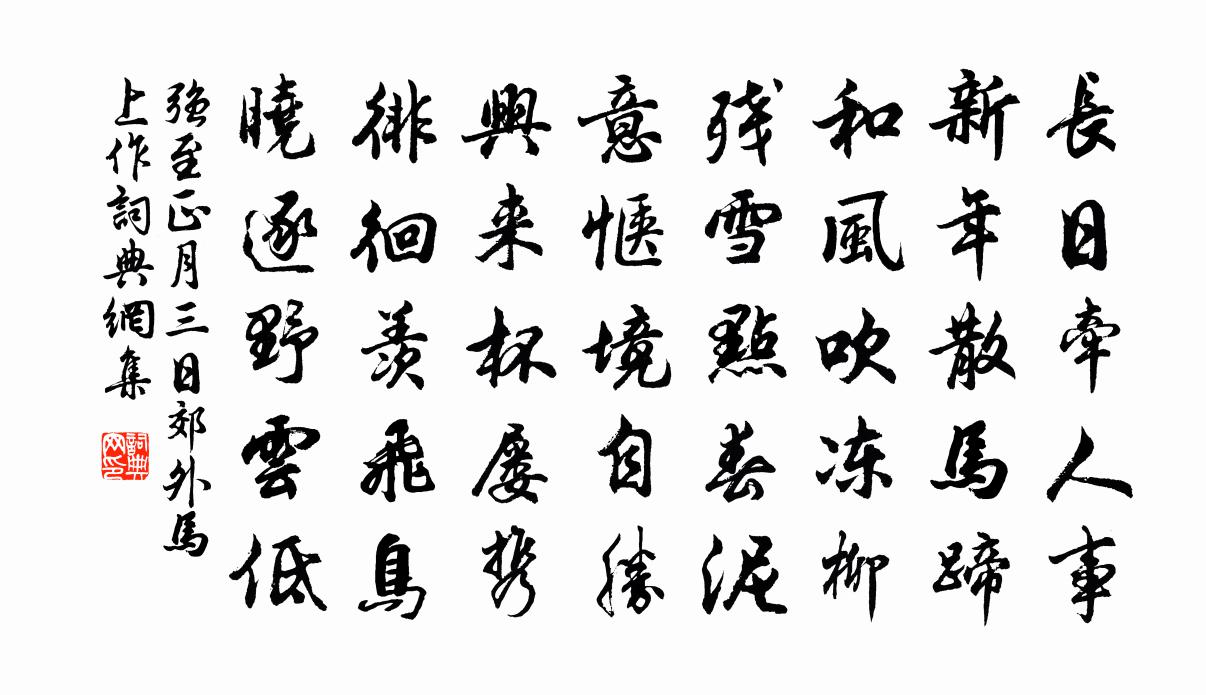 長日牽人事
新年散馬蹄
和風吹冻柳
残雪點春泥
意愜境自勝
興来杯屡携
徘徊羨飛鳥
曉逐野雲低
強至正月三日郊外馬
上作詞典網集
詞典网印